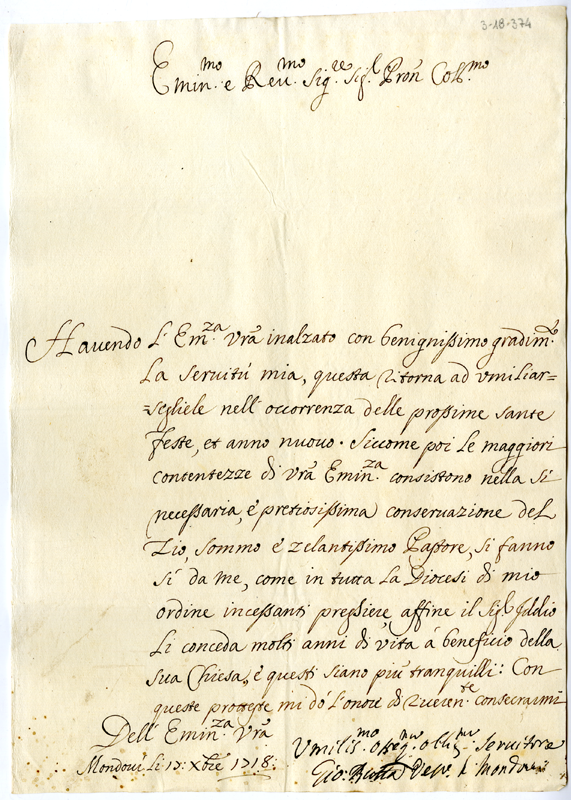 3-18-374
Emin.mo e Reu.mo Sig.re Sig.r Pron Coll.mo
Hauendo L'Em.za Vra inalzato con benignissimo gradim.to
La seruitú mia, questa ritorna ad vmiliar=
=segliele nell'occorrenza delle prossime sante
feste, et anno nuouo. Siccome poi Le maggiori
contentezze di Vra Emin.za consistono nella sí
necessaria, é pretiosissima conseruazione deL
Zio, sommo é zelantissimo Pastore, si fanno
sí da me, come in tutta La Diocesi di mio
ordine incessanti preghiere affine il Sig.r Iddio
Li conceda molti anni di vita á beneficio della
sua Chiesa, é questi siano piú tranquilli: Con
queste proteste mi dó L'onore di riueren.te consecrarmi
Dell'Emin.za Vra
Mondoui Li 17: Xbre 1718:
Vmilis.mo osseq.mo obblig.mo Seruitore
Gio: Batta Vesc.o di Mondoui